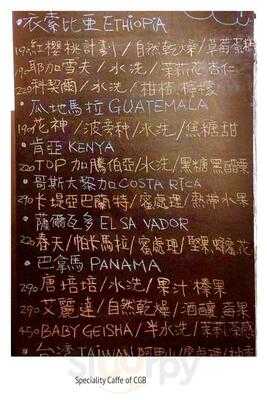 •衣索比亞 ETHIOPIA
190 紅櫻桃計劃/自然乾燥/草莓蜜糖
190 耶加雪夫/水洗/茉莉花 杏仁
220 科契爾/水洗/柑橘 檸檬
•瓜地馬拉 GUATEMALA
190 花神/波旁種/水洗/焦糖甜
•肯亞 KENYA
220 TOP 加騰伯亞/水洗/黑糖 黑醋栗
•哥斯大黎加 COSTA RICA
240 卡堤亞巴蘭特/蜜處理/熱帶水果
•薩爾瓦多 EL SAVADOR
220 春天/帕卡馬拉/蜜處理/堅果 蜂蜜花
•巴拿馬 PANAMA
290 唐培培/水洗/果汁 榛果
290 艾麗達/自然乾燥/酒釀 莓果
450 BABY GEISHA/半水洗/茉莉 茶感
台灣 TAIWAN 阿里山/
Speciality Caffe of CGB